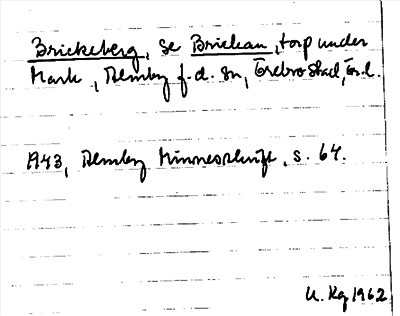 Brickeberg, se Brickan, torp under
Mark, Almby f.d. sn, Örebro stad, Ör. l.
1943, Almby Minnesskrift, s. 64.
U. Kg 1962